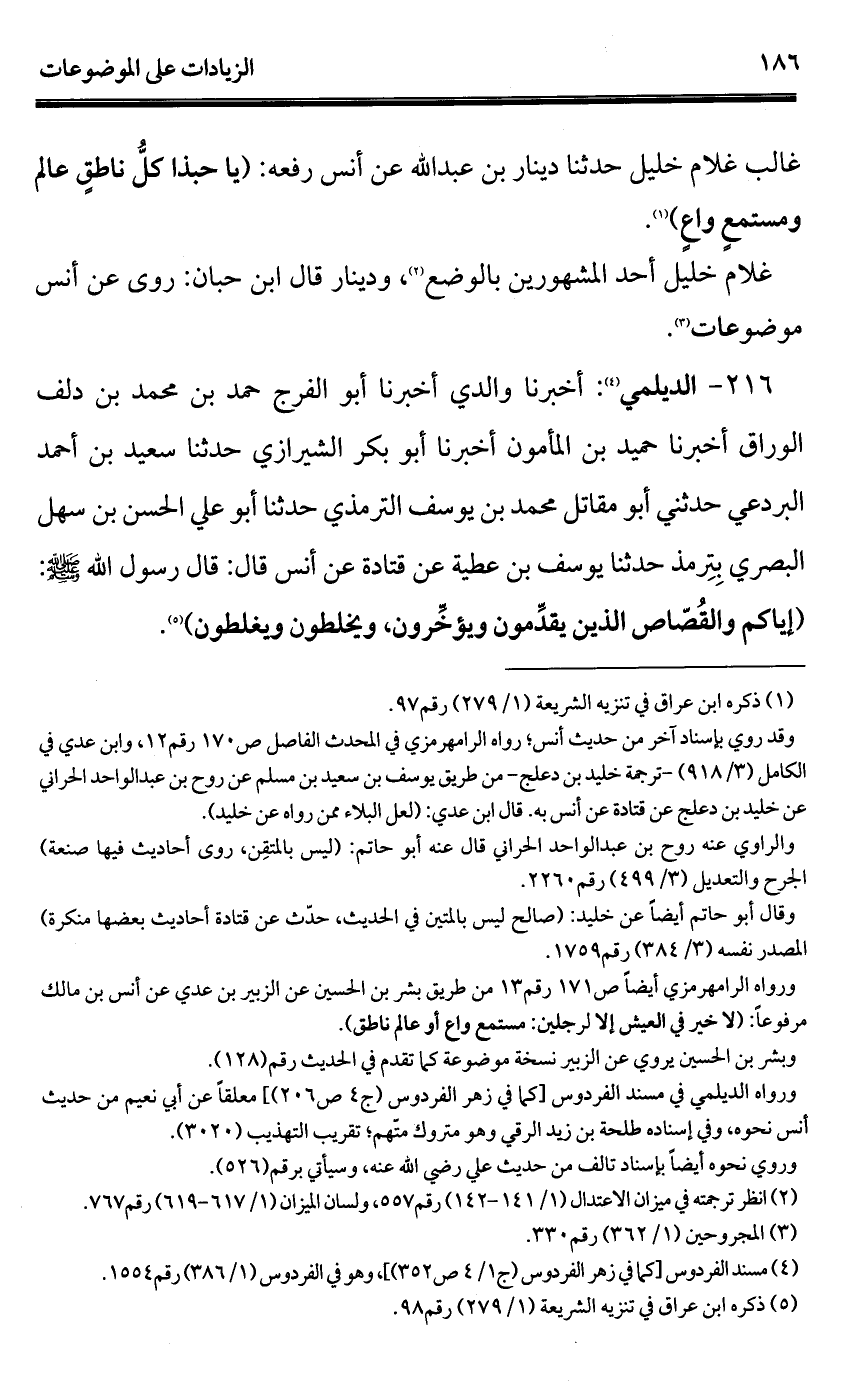 ١٨٦ الزيادات على الموضوعات
غالب غلام خليل حدثنا دينار بن عبدالله عن أنس رفعه: (يا حبذا كلُّ ناطقٍ عالم
ومستمعٍ واعٍ)(١).
غلام خليل أحد المشهورين بالوضع(٢)، ودينار قال ابن حبان: روى عن أنس
موضوعات(٣).
٢١٦- الديلمي(٤): أخبرنا والدي أخبرنا أبو الفرج حمد بن محمد بن دلف
الوراق أخبرنا حميد بن المأمون أخبرنا أبو بكر الشيرازي حدثنا سعيد بن أحمد
البردعي حدثني أبو مقاتل محمد بن يوسف الترمذي حدثنا أبو علي الحسن بن سهل
البصري بِتِرمذ حدثنا يوسف بن عطية عن قتادة عن أنس قال: قال رسول الله ﷺ:
(إياكم والقُصّاص الذين يقدِّمون ويؤخِّرون، ويخلطون ويغلطون)(٥).
(١) ذكره ابن عراق في تنزيه الشريعة (١/ ٢٧٩) رقم٩٧.
وقد روي بإسناد آخر من حديث أنس؛ رواه الرامهرمزي في المحدث الفاصل ص١٧٠ رقم١٢، وابن عدي في
الكامل (٣/ ٩١٨) -ترجمة خليد بن دعلج- من طريق يوسف بن سعيد بن مسلم عن روح بن عبدالواحد الحراني
عن خليد بن دعلج عن قتادة عن أنس به. قال ابن عدي: (لعل البلاء ممن رواه عن خليد).
والراوي عنه روح بن عبدالواحد الحراني قال عنه أبو حاتم: (ليس بالمتقِن، روى أحاديث فيها صنعة)
الجرح والتعديل (٣/ ٤٩٩) رقم٢٢٦٠.
وقال أبو حاتم أيضاً عن خليد: (صالح ليس بالمتين في الحديث، حدّث عن قتادة أحاديث بعضها منكرة)
المصدر نفسه (٣/ ٣٨٤) رقم١٧٥٩.
ورواه الرامهرمزي أيضاً ص١٧١ رقم١٣ من طريق بشر بن الحسين عن الزبير بن عدي عن أنس بن مالك
مرفوعاً: (لا خير في العيش إلا لرجلين: مستمع واع أو عالم ناطق).
وبشر بن الحسين يروي عن الزبير نسخة موضوعة كما تقدم في الحديث رقم(١٢٨).
ورواه الديلمي في مسند الفردوس [كما في زهر الفردوس (ج٤ ص٢٠٦)] معلقاً عن أبي نعيم من حديث
أنس نحوه، وفي إسناده طلحة بن زيد الرقي وهو متروك متّهم؛ تقريب التهذيب (٣٠٢٠).
وروي نحوه أيضاً بإسناد تالف من حديث علي رضي الله عنه، وسيأتي برقم(٥٢٦).
(٢) انظر ترجمته في ميزان الاعتدال (١/ ١٤١-١٤٢) رقم٥٥٧، ولسان الميزان (١/ ٦١٧-٦١٩) رقم٧٦٧.
(٣) المجروحين (١/ ٣٦٢) رقم٣٣٠.
(٤) مسند الفردوس [كما في زهر الفردوس (ج١/ ٤ ص٣٥٢)]، وهو في الفردوس (١/ ٣٨٦) رقم١٥٥٤.
(٥) ذكره ابن عراق في تنزيه الشريعة (١/ ٢٧٩) رقم٩٨.